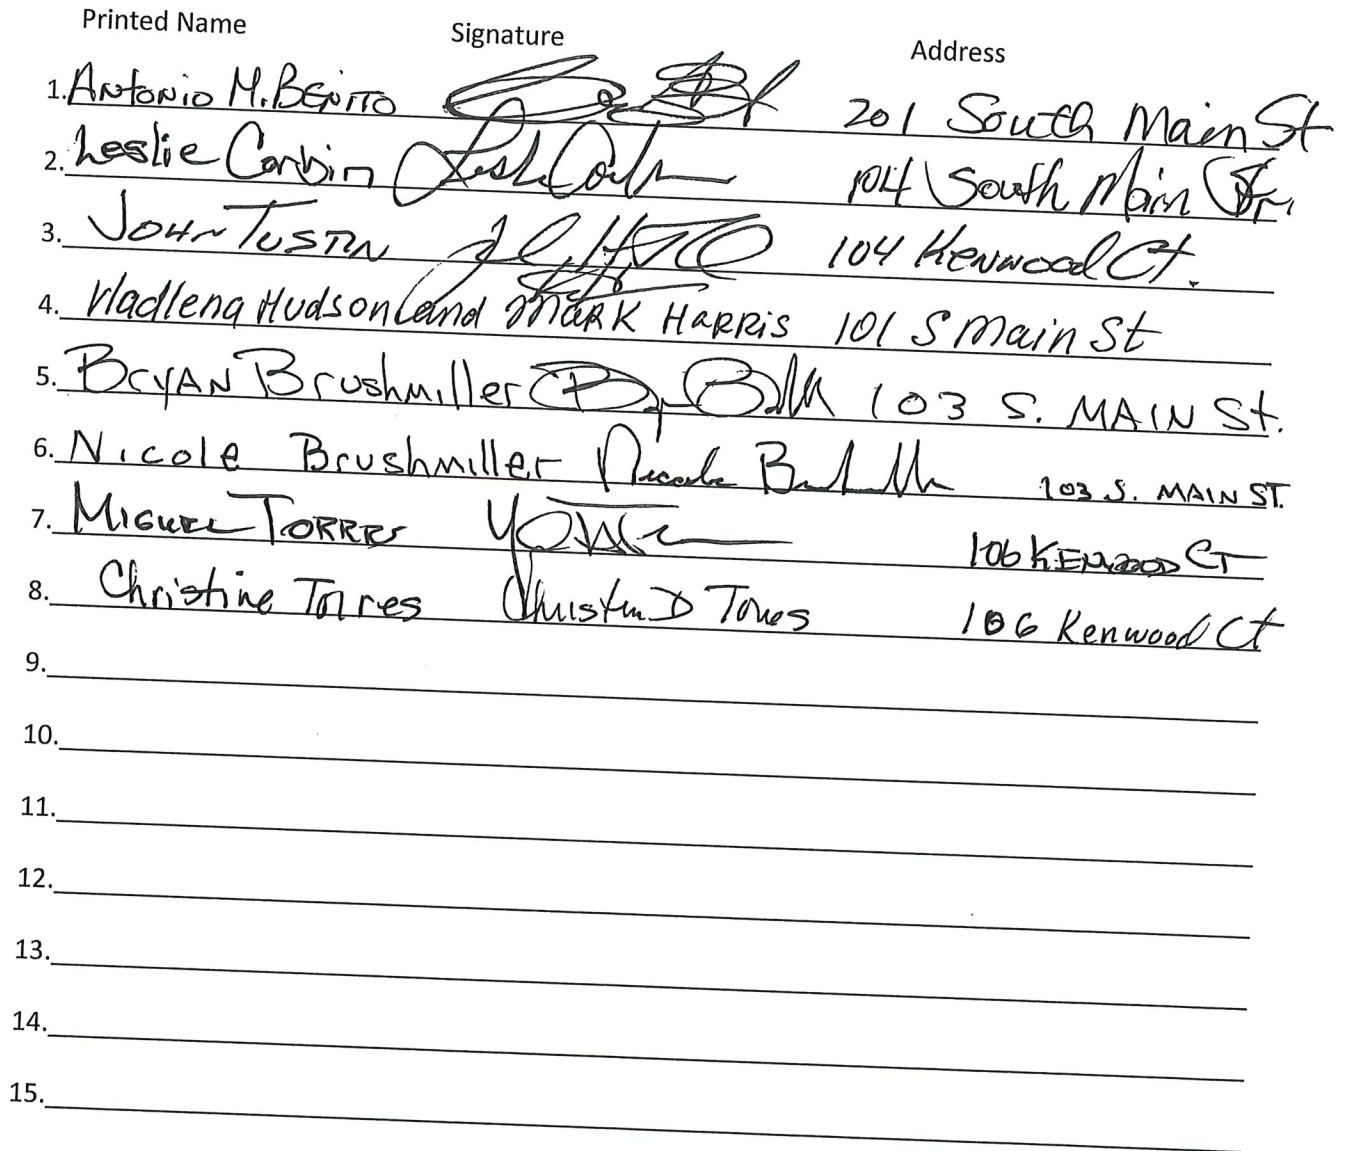 Printed Name Signature Address
1. Antonio M. Benito 201 South Main St
2. Leslie Corbin Leslie Corbin 104 South Main St.
3. John Tustin 104 Kenwood Ct.
4. Hudson and Mark Harris 101 S Main St
5. Bryan Brushmiller 103 S. MAIN St.
6. Nicole Brushmiller Nicole 103 S. MAIN ST.
7. Miguel Torres 106 KENWOOD CT
8. Christine Torres Christine D Torres 106 Kenwood Ct
9.
10.
11.
12.
13.
14.
15.